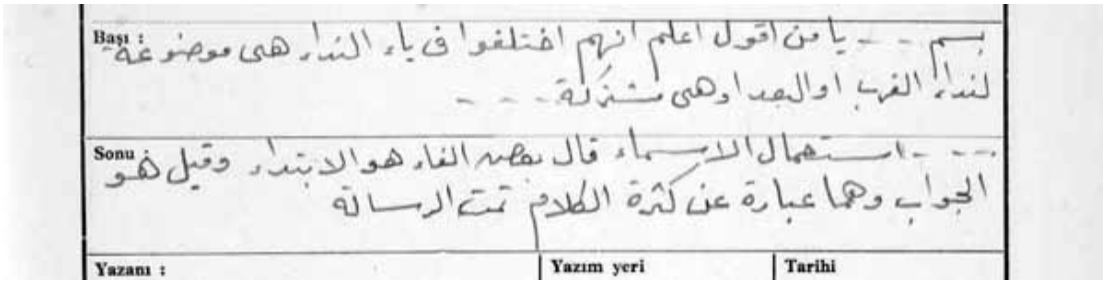 Başı :
بسم - - يا من اقول اعلم انهم اختلفوا فى ياء النداء هى موضوعة
لنداء القرب او البعد او هى مشتركة - - -
Sonu
- - - استعمال الاسماء قال بعض الفاء هو الابتداء وقيل هو
الجواب وهما عبارة عن كثرة الكلام تمت الرسالة
Yazanı :
Yazım yeri
Tarihi